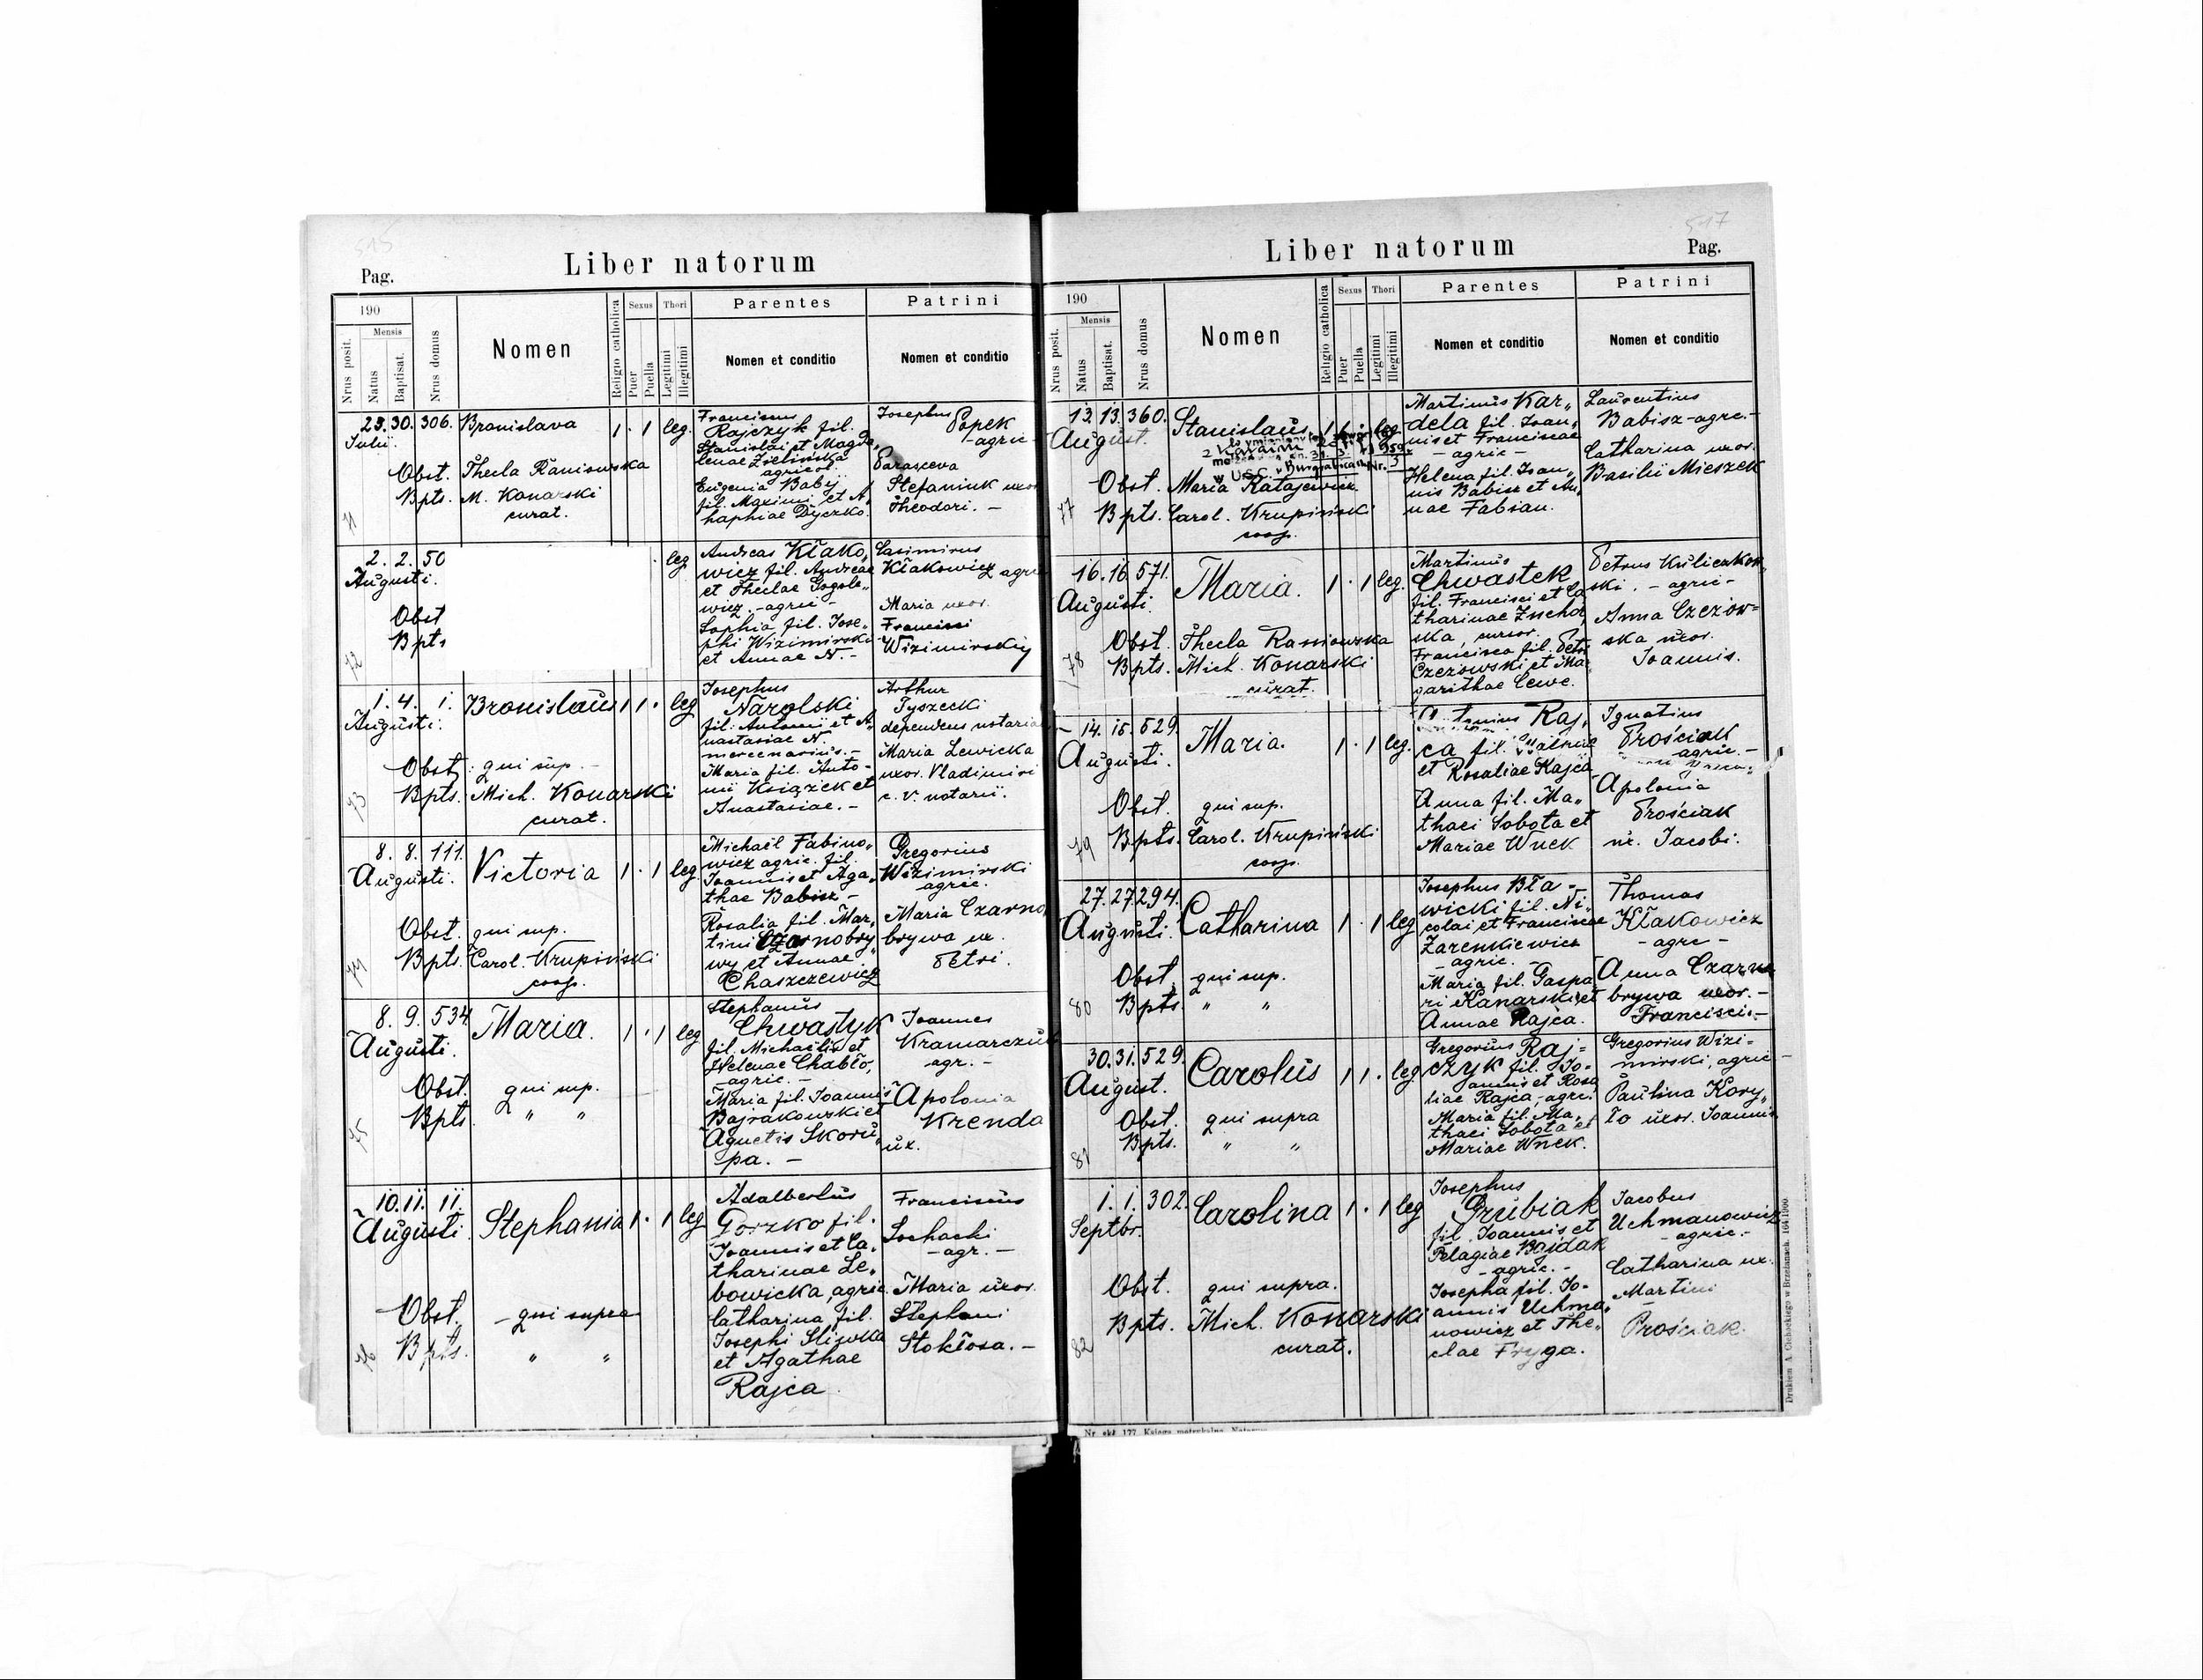 515
Liber natorum
Pag.
190
Mensis
Nrus posit.
Natus
Baptisat.
Nrus domus
Nomen
Religio catholica
Sexus
Puer
Puella
Thori
Legitimi
Illegitimi
Parentes
Nomen et conditio
Patrini
Nomen et conditio
71
23. 30. 306. Bronislava 1 . 1 leg.
Julii.
Obst. Thecla Raniowska
Bpts. M. Konarski
curat.
Franciscus
Rajczyk fil.
Stanislai et Magda„
lenae Zielińska
agricol.
Eugenia Babij
fil. Maximi et A„
haphiae Dyczko.
Josephus
Popek
-agric-
Parasceva
Stefaniuk uxor
Theodori. -
72
2. 2. 50 leg
Augusti.
Obst
Bpts
Andreas Kłako„
wicz fil. Andreae
et Theclae Gogole„
wicz. -agric-
Sophia fil. Jose„
phi Wizimirski
et Annae N. -
Casimirus
Kłakowicz agric
Maria uxor.
Francisci
Wizimirskij
73
1. 4. 1. Bronislaus 1 1 . leg
Augusti.
Obst. qui sup. -
Bpts. Mich. Konarski
curat.
Josephus
Narolski
fil. Antonii et A„
nastasiae N.
mercenarius. -
Maria fil. Anto-
nii Książek et
Anastasiae. -
Arthur
Tyszecki
dependens notarial
Maria Lewicka
uxor. Vladimiri
c. v. notarii.
74
8. 8. 111. Victoria 1 . 1 leg.
Augusti.
Obst. qui sup.
Bpts. Carol. Krupiński
coop.
Michaël Fabino„
wicz agric. fil.
Joannis et Aga„
thae Babisz -
Rosalia fil. Mar„
tini Czarnobry„
wy et Annae
Chaszczewicz
Gregorius
Wizimirski
agric.
Maria Czarno
brywa ux.
Petri.
75
8. 9. 534. Maria. 1 . 1 leg
Augusti.
Obst. qui sup.
Bpts. " "
Stephanus
Chwastyk
fil. Michaëlis et
Helenae Chabło,
-agric. -
Maria fil. Joannis
Bajrakowski et
Agnetis Skoru„
pa. -
Joannes
Kramarczuk
agr. -
Apolonia
Krenda
ux.
76
10. 11. 11. Stephania 1 . 1 leg
Augusti.
Obst. - qui supra
Bpts. " "
Adalbertus
Gorzko fil.
Joannis et Ca„
tharinae Le„
bowicka, agric.
Catharina fil.
Josephi Sliwka
et Agathae
Rajca.
Franciscus
Sochacki
-agr. -
Maria uxor.
Stephani
Stokłosa. -
517
Liber natorum
Pag.
190
Mensis
Nrus posit.
Natus
Baptisat.
Nrus domus
Nomen
Religio catholica
Sexus
Puer
Puella
Thori
Legitimi
Illegitimi
Parentes
Nomen et conditio
Patrini
Nomen et conditio
77
13. 13. 360. Stanislaus 1 1 . leg
August.
Obst. Maria Ratajewicz
Bpts. Carol. Krupiński
coop.
Martinus Kar„
dela fil. Joan„
nis et Franciscae
- agric -
Helena fil. Joan„
nis Babisz et An„
nae Fabian.
Laurentius
Babisz-agric.-
Catharina uxor.
Basilii Mieszek
78
16. 16. 571. Maria. 1 . 1 leg.
Augusti.
Obst. Thecla Raniowska
Bpts. Mich. Konarski
curat.
Martinus
Chwastek
fil. Francisci et Ca
tharinae Zuchow
ska, cursor.
Francisca fil. Petri
Czezowski et Ma„
garithae Cewe.
Petrus Kuliczkow„
ski. - agric-
Anna Czezow=
ska uxor.
Joannis.
79
14. 15. 529. Maria. 1 . 1 leg.
Augusti.
Obst. qui sup.
Bpts. Carol. Krupiński
coop.
Raj„
ca fil.
et Rosaliae Rajca
Anna fil. Ma„
thaei Sobota et
Mariae Wnek
Ignatius
Prościak
agric. -
Apolonia
Prościak
ux. Jacobi.
80
27. 27. 294. Catharina 1 . 1 leg
Augusti.
Obst. qui sup.
Bpts. " "
Josephus Bła-
wicki fil. Ni„
colai et Franciscae
Zarenkiewicz
-agric. -
Maria fil. Gaspa
ri Kanarski et
Annae Rajca.
Thomas
Kłakowicz
- agric -
Anna Czarno
brywa uxor. -
Francisci. -
81
30. 31. 529. Carolus 1 1 . leg
August.
Obst. qui supra
Bpts. " "
Gregorius Raj=
czyk fil. Jo-
annis et Rosa
liae Rajca, agric.
Maria fil. Ma„
thaei Sobota et
Mariae Wnek.
Gregorius Wizi=
mirski, agric -
Paulina Kory„
to uxor. Joannis
82
1. 1. 302. Carolina 1 . 1 leg
Septbr.
Obst. qui supra.
Bpts. Mich. Konarski
curat.
Josephus
Grubiak
fil. Joannis et
Pelagiae Bajdak
-agric. -
Josepha fil. Jo-
annis Uchma„
nowicz et The„
clae Fryga.
Jacobus
Uchmanowicz
-agric. -
Catharina ux.
Martini
Prościak.
Drukiem A. Chebackiego w Brzeżanach. 164/1900